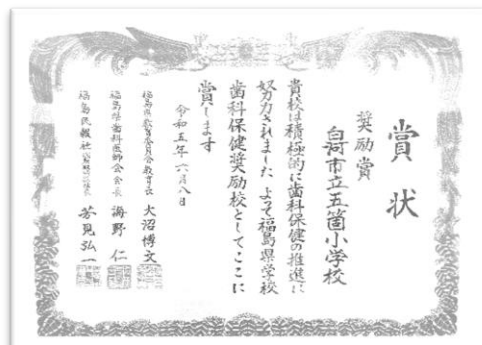 賞状
奨励賞
白河市立五箇小学校
貴校は積極的に歯科保健の推進に
努力されました よって福島県学校
歯科保健奨励校としてここに
賞します
令和五年六月八日
福島県教育委員会教育長 大沼博文
福島県歯科医師会会長 海野仁
福島民報社 芳見弘一